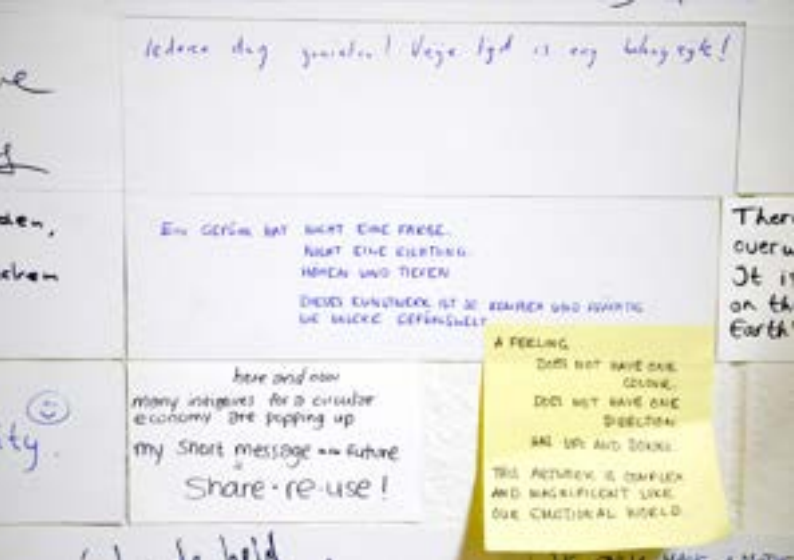 Iedere dag genieten! Vrije tijd is erg belangrijk!
den,
EIN GEFÜHL HAT NICHT EINE FARBE.
NICHT EINE RICHTUNG.
HÖHEN UND TIEFEN
DIESES KUNSTWERK IST SO KOMPLEX UND
WIE UNSERE GEFÜHLSWELT
Ther
over
It is
on th
Earth'
ty.
here and now
many initiatives for a circular
economy are popping up
my short message future
Share·re-use!
A FEELING
DOES NOT HAVE ONE
COLOUR.
DOES NOT HAVE ONE
DIRECTION
HAS UPS AND DOWNS.
THIS ARTWORK IS COMPLEX
AND MAGNIFICENT LIKE
OUR EMOTIONAL WORLD